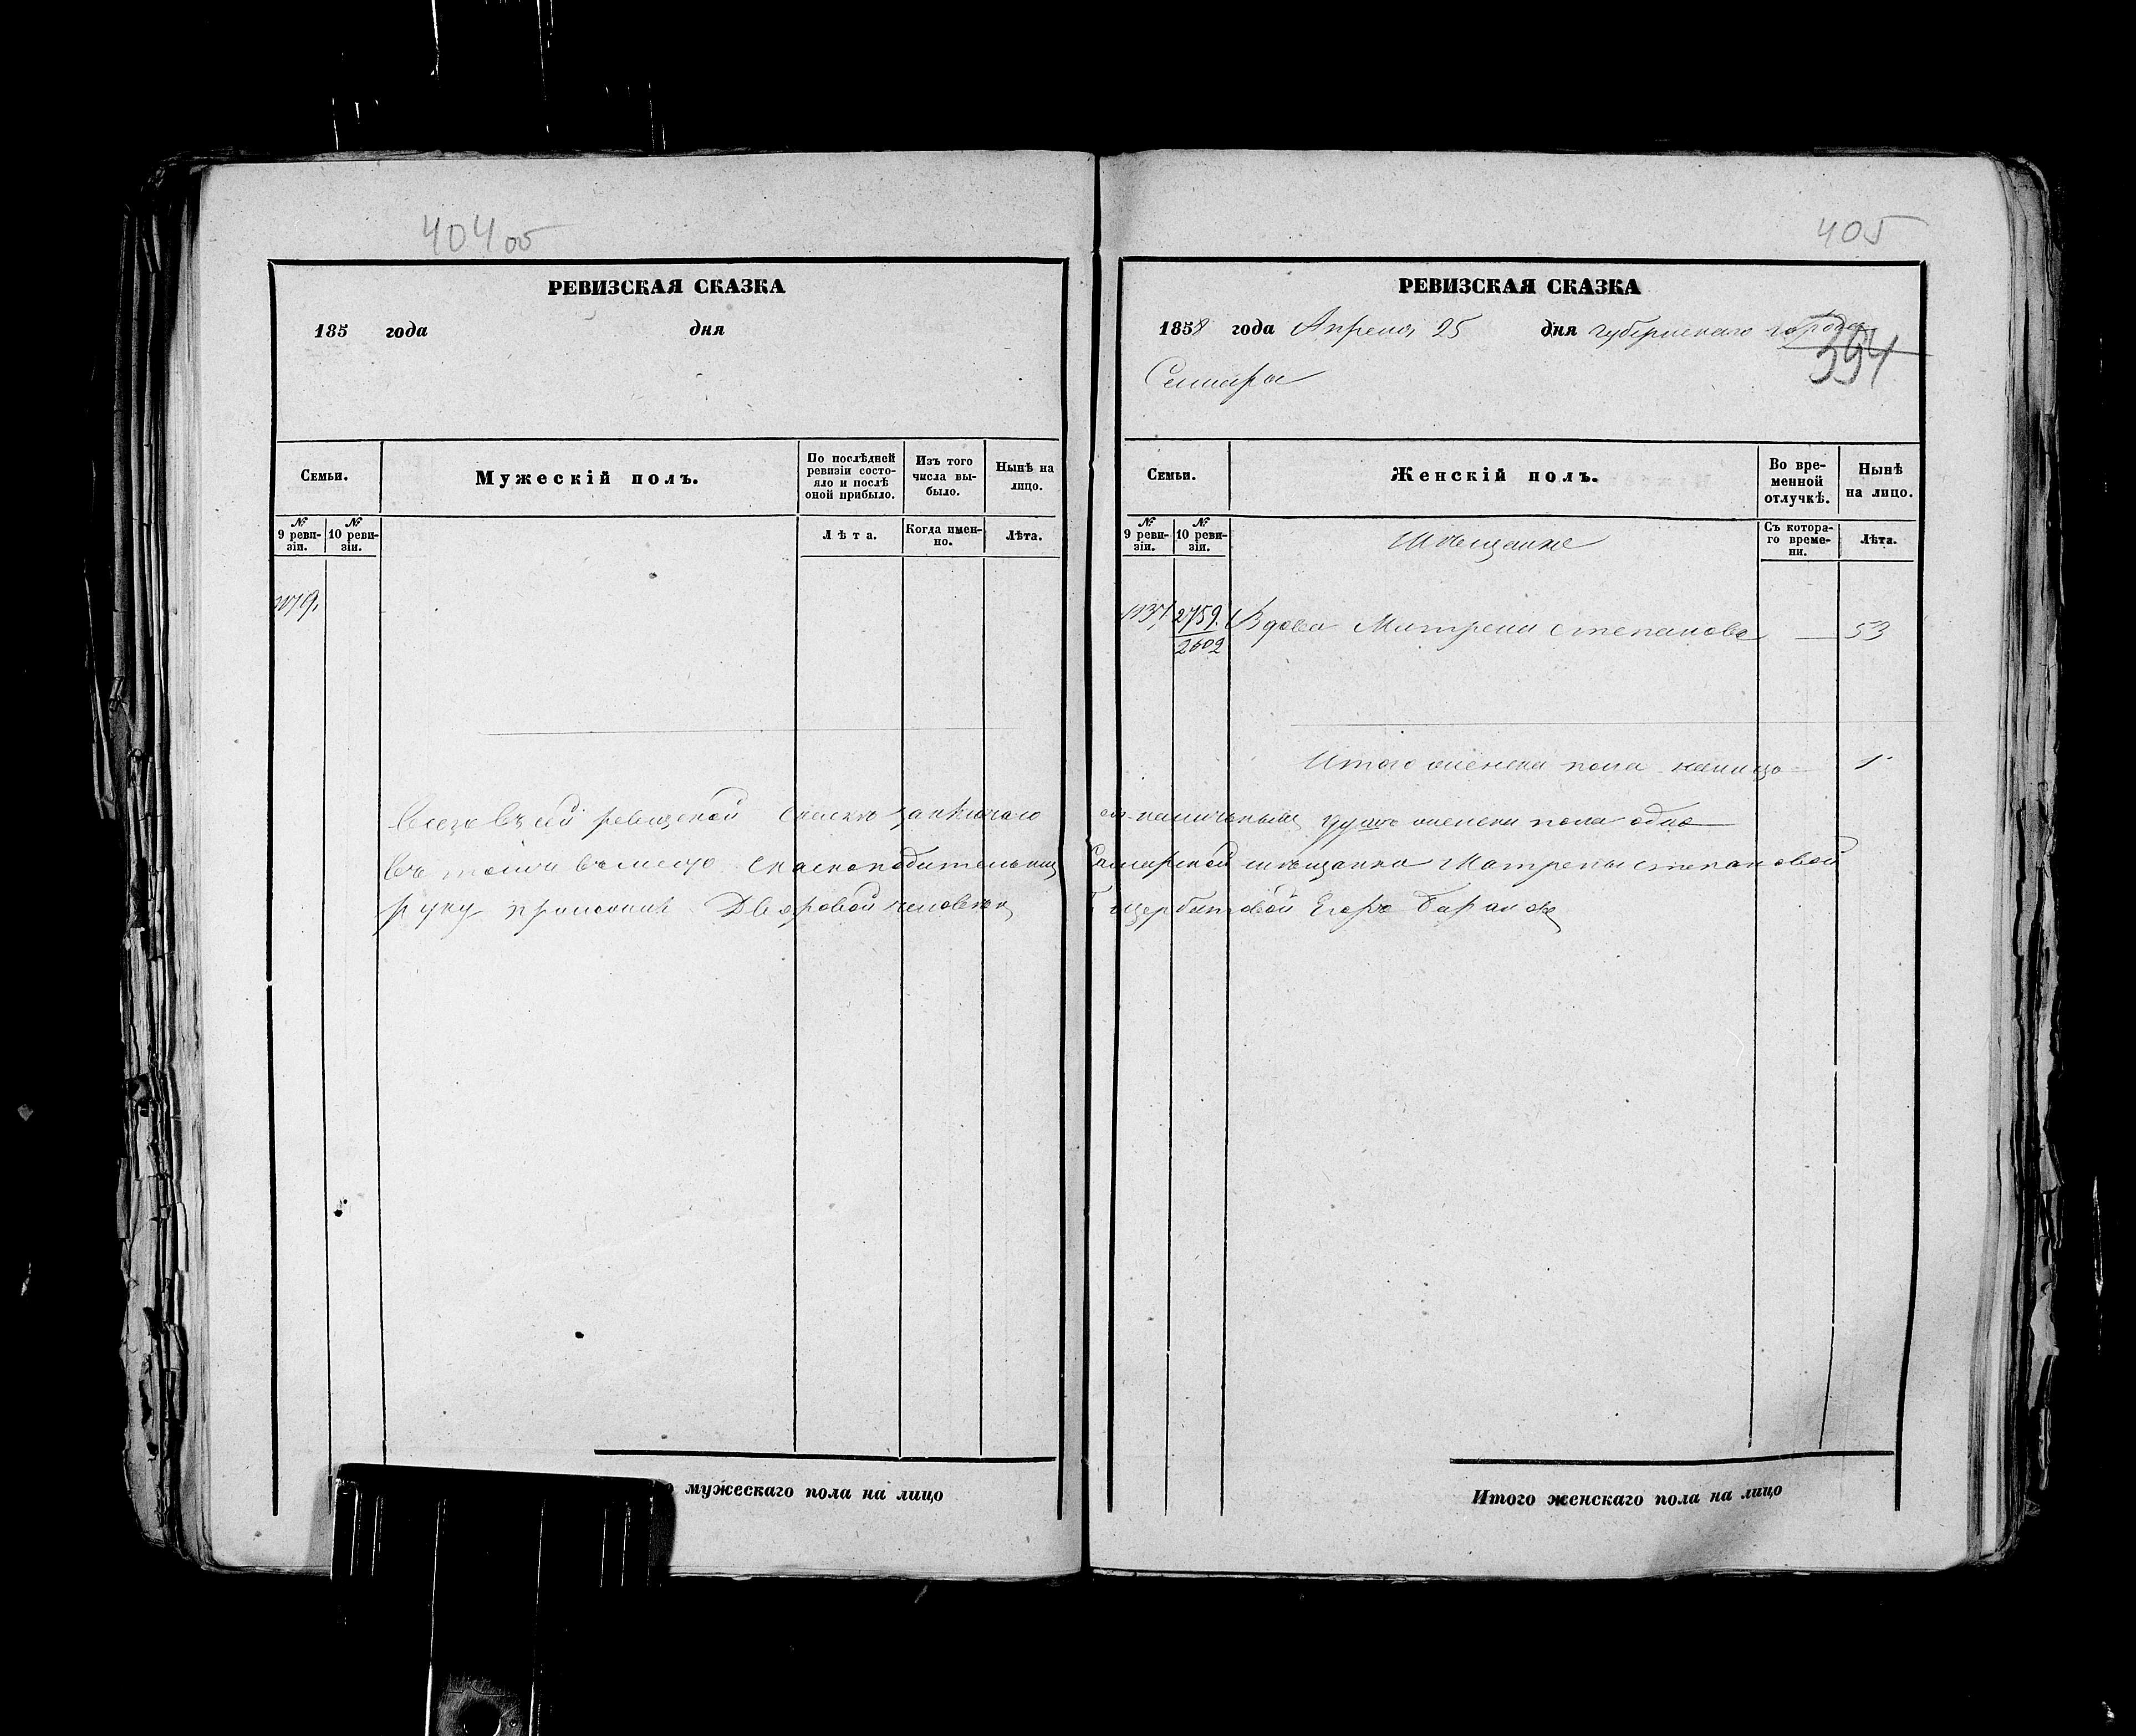 404 об
РЕВИЗСКАЯ СКАЗКА
185 года дня
Семьи.
Мужескій полъ.
По послѣдней ревизіи состояло и послѣ оной прибыло.
Изъ того числа выбыло.
Нынѣ на лицо.
№ 9 ревизіи.
№ 10 ревизіи.
Лѣта.
Когда именно.
Лѣта.
мужескаго пола на лицо
405
РЕВИЗСКАЯ СКАЗКА
1858 года Апреля 25 дня губернскаго города
394
Самары
Семьи.
Женскій полъ.
Во временной отлучкѣ.
Нынѣ на лицо.
№ 9 ревизіи.
№ 10 ревизіи.
Мѣщанке
Съ котораго времени.
Лѣта.
2759. Вдова Матрена Степанова — 53
2602
Итого женска пола налицо 1
Всего въ сей ревизской сказке душъ женска пола одна
Въ томъ вместо Самарской мещанки Матрены Степановой
руку приложилъ Дворовой человекъ Егоръ
Итого женскаго пола на лицо